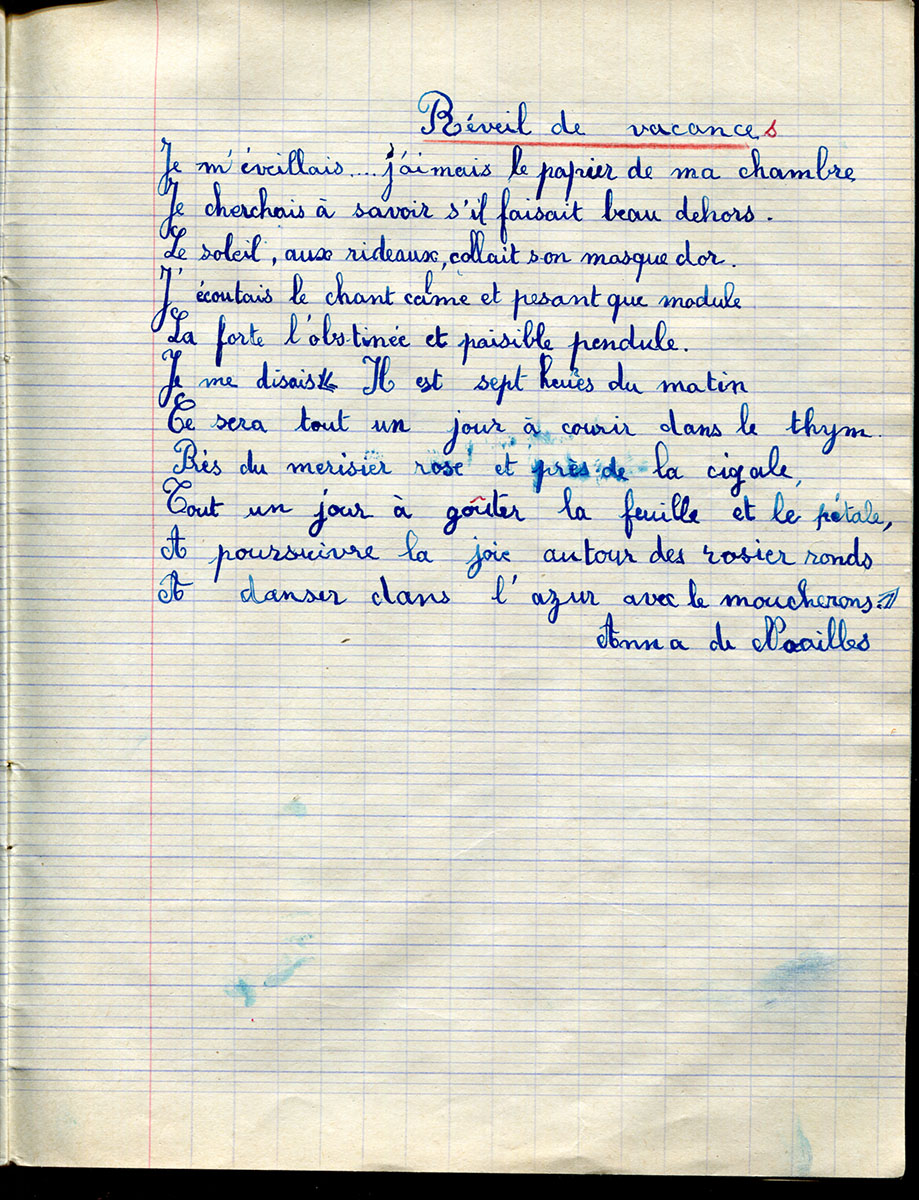 Réveil de vacances
Je m'éveillais.... j'aimais le papier de ma chambre
Je cherchais à savoir s'il faisait beau dehors.
Le soleil, aux rideaux, collait son masque dor.
J'écoutais le chant calme et pesant que module
La forte l'obstinée et paisible pendule.
Je me disais « Il est sept heures du matin
Ce sera tout un jour à courir dans le thym.
Près du merisier rose et près de la cigale,
Tout un jour à goûter la feuille et le pétale,
A poursuivre la joie autour des rosier ronds
A danser dans l'azur avec le moucherons. »
Anna de Noailles